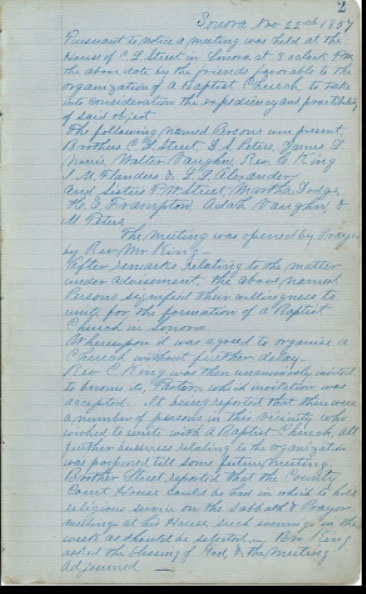 2
Sonora Nov 22nd 1857
Pursuant to notice a meeting was held at the
House of C L Street in Sonora at 3 oclock P.M.
the above date by the friends favorable to the
organization of A Baptist Church, to take
into consideration the expediency and practibility
of said object
The following named Persons were present,
Brothers C L Street, Peters, L
Norris, Walter Vaughn, Rev. C King
J. M. Flanders & Alexander
And Sisters P. W. Street, Martha Dodge,
Frampton, Adah Vaughn, &
M Peters
The meeting was opened by Prayer
by Rev Mr King
After remarks relating to the matter
under advisement, the above named
Persons signified their willingness to
unite for the formation of a Baptist
Church in Sonora
Whereupon it was agreed to organize a
Church without further delay.
Rev C. King was then unanimously invited
to become its, Pastor which invitation was
accepted. It being reported that there were
a number of persons in this vicinity who
wished to unite with A Baptist Church, all
further business relating to the organization
was posponed till some future meeting.
Brother Street reported that the County
Court House could be had in which to hold
religious on the Sabbath & Prayer
meetings at his House such evenings in the
week as should be selected. — Bro King
asked the blessing of God, & the meeting
adjourned —